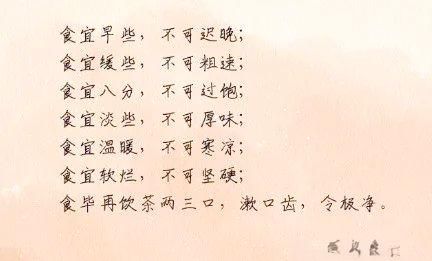 食宜早些，不可迟晚；
食宜缓些，不可粗速；
食宜八分，不可过饱；
食宜淡些，不可厚味；
食宜温暖，不可寒凉；
食宜软烂，不可坚硬；
食毕再饮茶两三口，漱口齿，令极净。